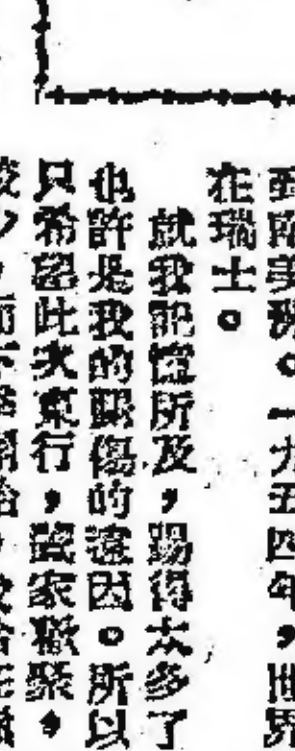 到南美洲。一九五四年,世界
在瑞士。
就我記憶所及,踢得太多了
也許是我的腿傷的遠因。所以
只希望此次東行,闔家歡聚,